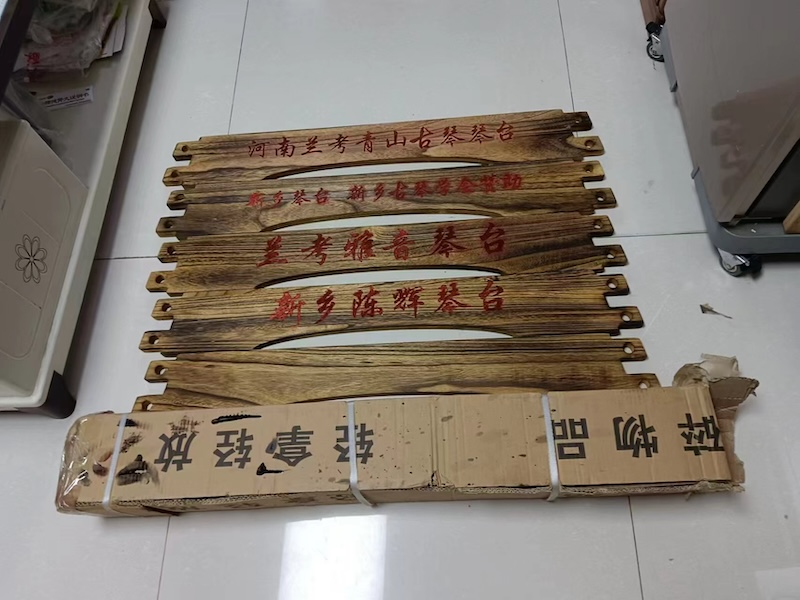 河南兰考青山古琴琴台
新乡琴台 新乡古琴学会赞助
兰考雅音琴台
新乡陈辉琴台
碎物品 轻拿轻放